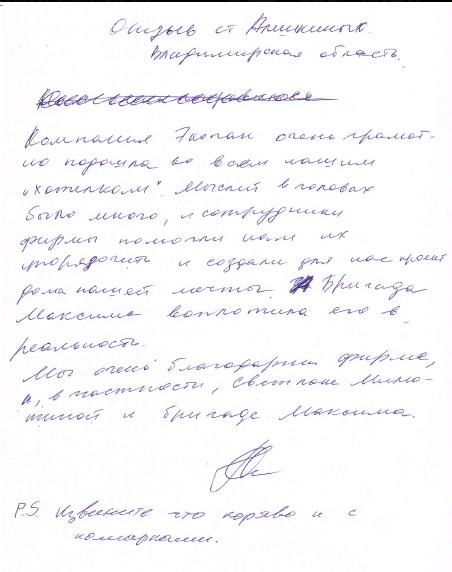 Отзыв от Алишкиных.
Владимирская область.
Компания Экопан очень грамот-
но подошла ко всем нашим
"хотелкам". Мыслей в головах
было много, и сотрудники
фирмы помогли нам их
упорядочить и создали для нас проект
дома нашей мечты. Бригада
Максима воплотила его в
реальность.
Мы очень благодарны фирме,
и, в частности, Светлане Милю-
тиной и бригаде Максима.
P.S. Извините что коряво и с
помарками.